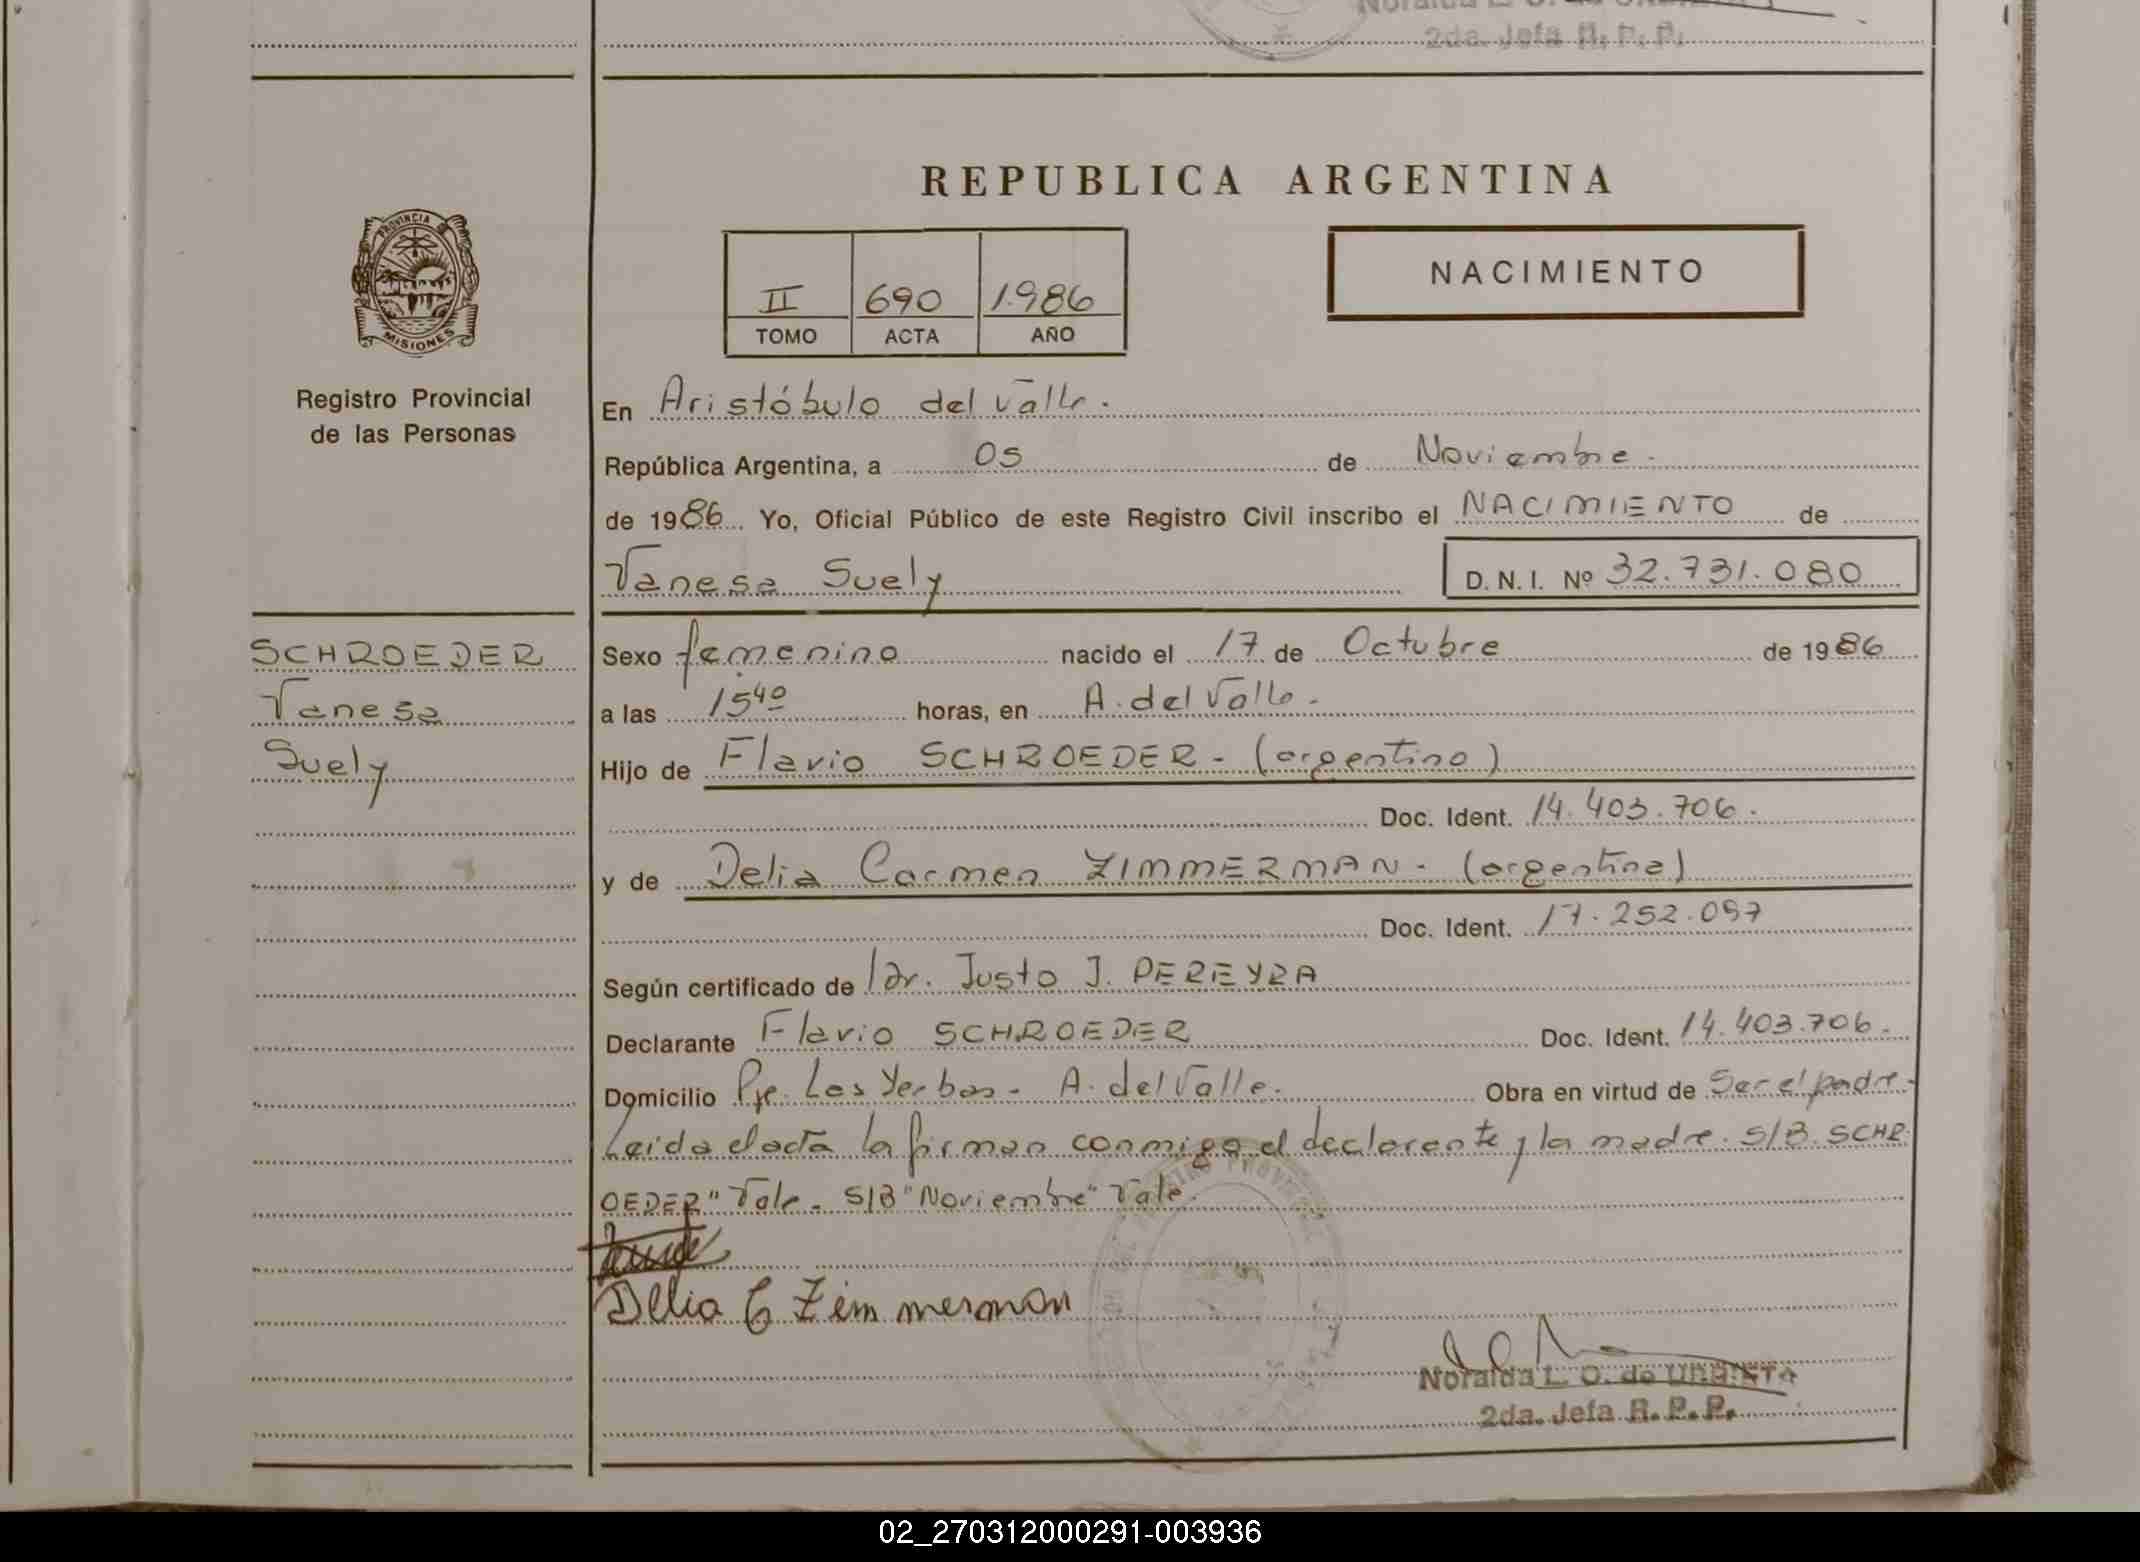 2da. Jefa R. P. P.
REPUBLICA ARGENTINA
PROVINCIA
MISIONES
II 690 1.986
TOMO ACTA AÑO
NACIMIENTO
Registro Provincial
de las Personas
En Aristóbulo del Valle.
República Argentina, a 05 de Noviembre.
de 1986 Yo, Oficial Público de este Registro Civil inscribo el NACIMIENTO de
Vanesa Suely D. N. I. Nº 32.731.080
SCHROEDER
Vanesa
Suely
Sexo femenino nacido el 17 de Octubre de 1986
a las 15 40 horas, en A. del Valle.
Hijo de Flavio SCHROEDER - (argentino)
Doc. Ident. 14.403.706.
y de Delia Carmen ZIMMERMAN - (argentina)
Doc. Ident. 17.252.097
Según certificado de Dr. Justo J. PEREYRA
Declarante Flavio SCHROEDER Doc. Ident. 14.403.706.
Domicilio Pje. Las Yerbas - A. del Valle. Obra en virtud de Ser el padre.
Leida el acta la firman conmigo el declarante y la madre. S/B. SCHR
OEDER" Vale - S/B "Noviembre" Vale.
Delia C Zimmerman
Noralda L. O. de URBIETA
2da. Jefa R. P. P.
02_270312000291-003936